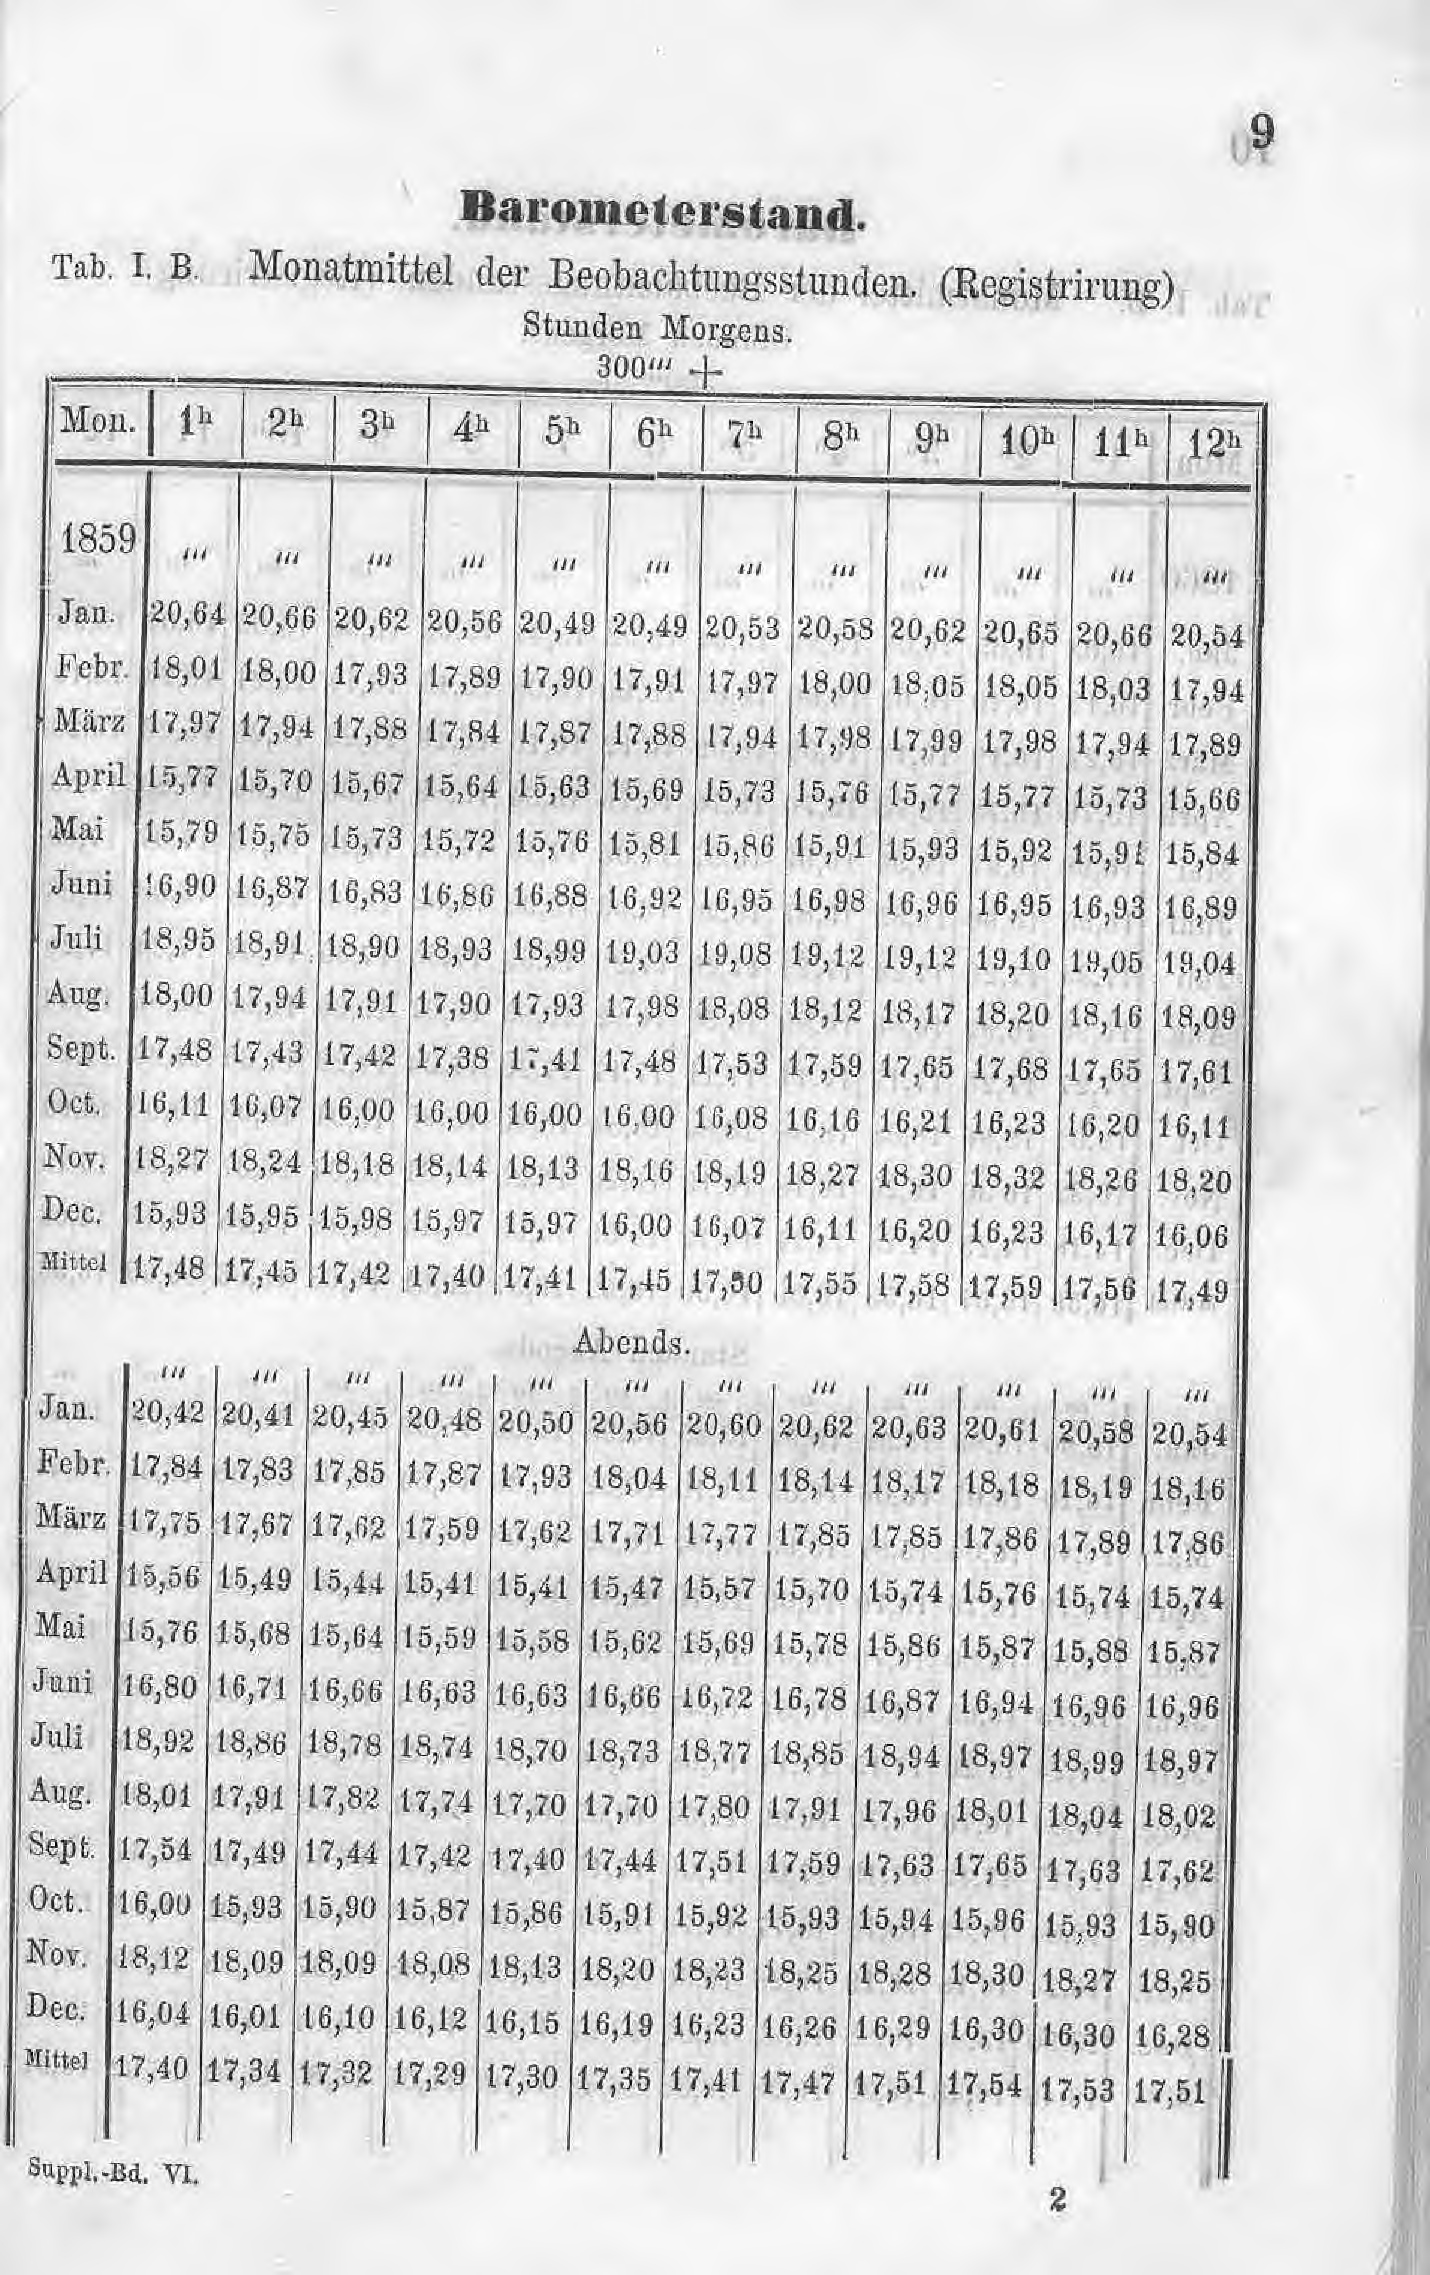 9
Barometerstand.
Tab. I. B. Monatmittel der Beobachtungsstunden. (Registrirung)
Stunden Morgens.
300''' +
Mon. 1h 2h 3h 4h 5h 6h 7h 8h 9h 10h 11h 12h
1859 ''' ''' ''' ''' ''' ''' ''' ''' ''' ''' ''' '''
Jan. 20,64 20,66 20,62 20,56 20,49 20,49 20,53 20,58 20,62 20,65 20,66 20,54
Febr. 18,01 18,00 17,93 17,89 17,90 17,91 17,97 18,00 18,05 18,05 18,03 17,94
März 17,97 17,94 17,88 17,84 17,87 17,88 17,94 17,98 17,99 17,98 17,94 17,89
April 15,77 15,70 15,67 15,64 15,63 15,69 15,73 15,76 15,77 15,77 15,73 15,66
Mai 15,79 15,75 15,73 15,72 15,76 15,81 15,86 15,91 15,93 15,92 15,91 15,84
Juni 16,90 16,87 16,83 16,86 16,88 16,92 16,95 16,98 16,96 16,95 16,93 16,89
Juli 18,95 18,91 18,90 18,93 18,99 19,03 19,08 19,12 19,12 19,10 19,05 19,04
Aug. 18,00 17,94 17,91 17,90 17,93 17,98 18,08 18,12 18,17 18,20 18,16 18,09
Sept. 17,48 17,43 17,42 17,38 17,41 17,48 17,53 17,59 17,65 17,68 17,65 17,61
Oct. 16,11 16,07 16,00 16,00 16,00 16,00 16,08 16,16 16,21 16,23 16,20 16,11
Nov. 18,27 18,24 18,18 18,14 18,13 18,16 18,19 18,27 18,30 18,32 18,26 18,20
Dec. 15,93 15,95 15,98 15,97 15,97 16,00 16,07 16,11 16,20 16,23 16,17 16,06
Mittel 17,48 17,45 17,42 17,40 17,41 17,45 17,50 17,55 17,58 17,59 17,56 17,49
Abends.
''' ''' ''' ''' ''' ''' ''' ''' ''' ''' ''' '''
Jan. 20,42 20,41 20,45 20,48 20,50 20,56 20,60 20,62 20,63 20,61 20,58 20,54
Febr. 17,84 17,83 17,85 17,87 17,93 18,04 18,11 18,14 18,17 18,18 18,19 18,16
März 17,75 17,67 17,62 17,59 17,62 17,71 17,77 17,85 17,85 17,86 17,89 17,86
April 15,56 15,49 15,44 15,41 15,41 15,47 15,57 15,70 15,74 15,76 15,74 15,74
Mai 15,76 15,68 15,64 15,59 15,58 15,62 15,69 15,78 15,86 15,87 15,88 15,87
Juni 16,80 16,71 16,66 16,63 16,63 16,66 16,72 16,78 16,87 16,94 16,96 16,96
Juli 18,92 18,86 18,78 18,74 18,70 18,73 18,77 18,85 18,94 18,97 18,99 18,97
Aug. 18,01 17,91 17,82 17,74 17,70 17,70 17,80 17,91 17,96 18,01 18,04 18,02
Sept. 17,54 17,49 17,44 17,42 17,40 17,44 17,51 17,59 17,63 17,65 17,63 17,62
Oct. 16,00 15,93 15,90 15,87 15,86 15,91 15,92 15,93 15,94 15,96 15,93 15,90
Nov. 18,12 18,09 18,09 18,08 18,13 18,20 18,23 18,25 18,28 18,30 18,27 18,25
Dec. 16,04 16,01 16,10 16,12 16,15 16,19 16,23 16,26 16,29 16,30 16,30 16,28
Mittel 17,40 17,34 17,32 17,29 17,30 17,35 17,41 17,47 17,51 17,54 17,53 17,51
Suppl.-Bd. VI.
2